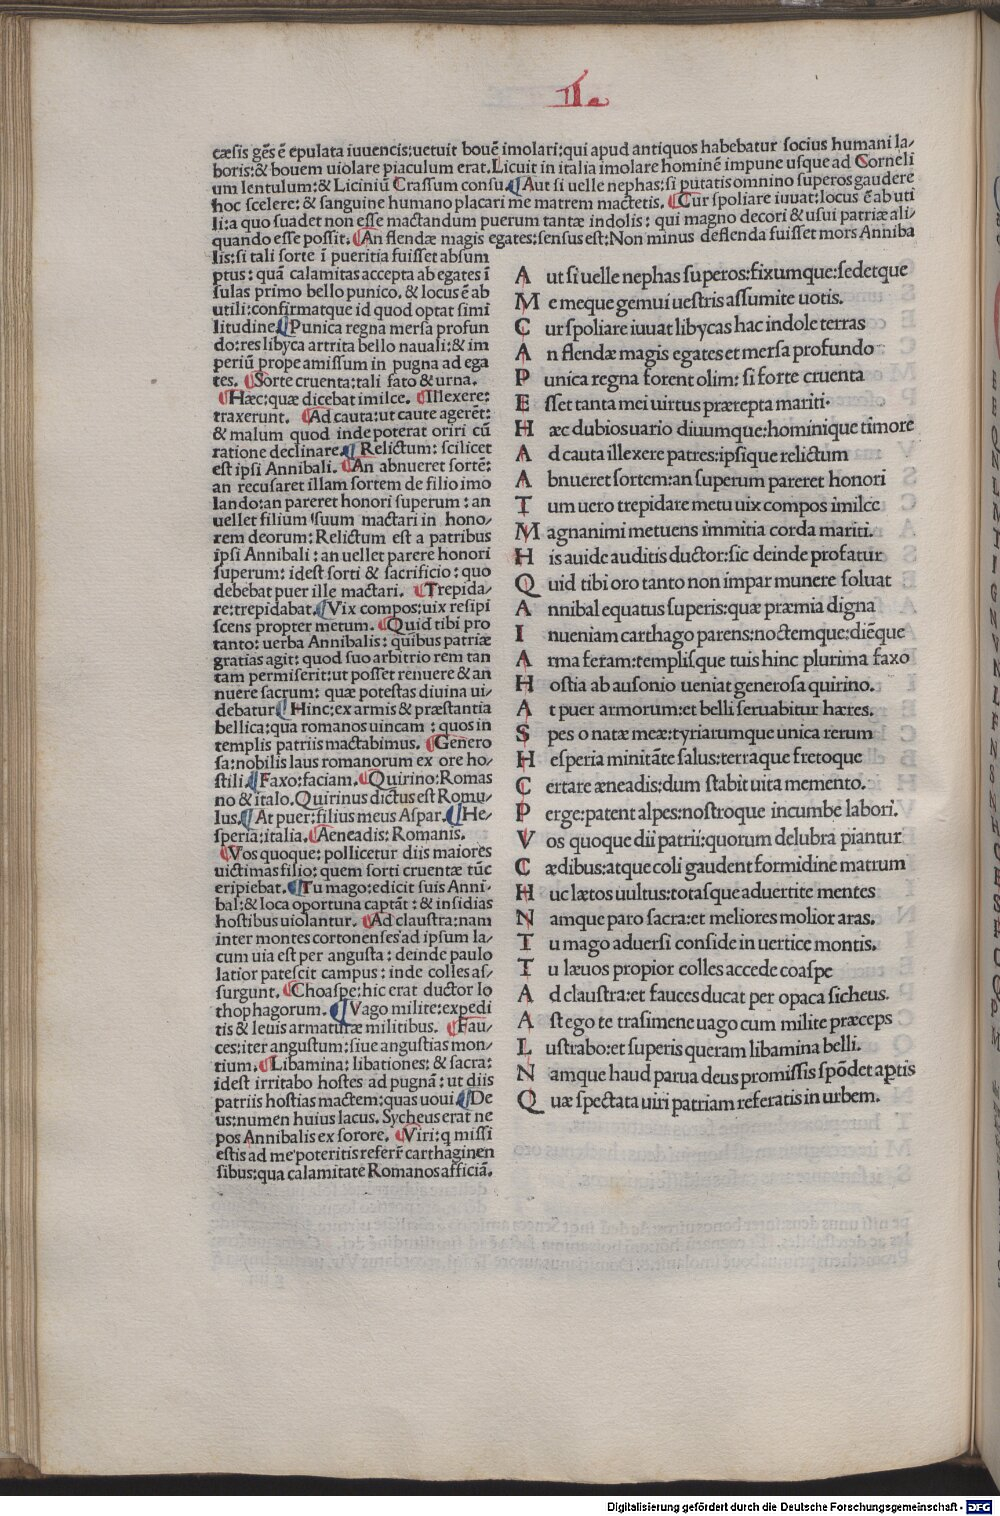 II.
cæsis gẽs ẽ epulata iuuencis:uetuit bouẽ imolari:qui apud antiquos habebatur socius humani la/
boris:& bouem uiolare piaculum erat.Licuit in italia imolare hominẽ impune usque ad Corneli
um lentulum:& Liciniũ Crassum consu.¶Aut si uelle nephas:si putatis omnino superos gaudere
hoc scelere: & sanguine humano placari me matrem mactetis. ¶Cur spoliare iuuat:locus ẽ ab uti
li:a quo suadet non esse mactandum puerum tantæ indolis: qui magno decori & usui patriæ ali/
quando esse possit.¶An flendæ magis egates:sensus est:Non minus deflenda fuisset mors Anniba
lis:si tali sorte ĩ pueritia fuisset absum
ptus: quã calamitas accepta ab egates ĩ
sulas primo bello punico. & locus ẽ ab
utili:confirmatque id quod optat simi
litudine.¶Punica regna mersa profun
do:res libyca artrita bello nauali:& im
periũ prope amissum in pugna ad ega
tes. ¶Sorte cruenta:tali fato & urna.
¶Hæc:quæ dicebat imilce. ¶Illexere:
traxerunt. ¶Ad cauta:ut caute agerẽt:
& malum quod inde poterat oriri cũ
ratione declinare.¶Relictum: scilicet
est ipsi Annibali.¶An abnueret sortẽ:
an recusaret illam sortem de filio imo
lando:an pareret honori superum: an
uellet filium suum mactari in hono/
rem deorum: Relictum est a patribus
ipsi Annibali: an uellet parere honori
superum: idest sorti & sacrificio: quo
debebat puer ille mactari. ¶Trepida/
re:trepidabat.¶Vix compos:uix resipi
scens propter metum.¶Quid tibi pro
tanto: uerba Annibalis: quibus patriæ
gratias agit: quod suo arbitrio rem tan
tam permiserit:ut posset renuere & an
nuere sacrum: quæ potestas diuina ui/
debatur¶Hinc:ex armis & præstantia
bellica:qua romanos uincam: quos in
templis patriis mactabimus. ¶Genero
sa:nobilis laus romanorum ex ore ho/
stili.¶Faxo:faciam.¶Quirino:Romas
no & italo.Quirinus dictus est Romu/
lus.¶At puer:filius meus Aspar.¶He/
speriã:italia.¶Aeneadis: Romanis.
¶Vos quoque: pollicetur diis maiores
uictimas filio: quem sorti cruentæ tũc
eripiebat.¶Tu mago:edicit suis Anni/
bal:& loca oportuna captãt: & insidias
hostibus uiolantur. ¶Ad claustra:nam
inter montes cortonenses ad ipsum la/
cum uia est per angusta: deinde paulo
latior patescit campus: inde colles as/
surgunt.¶Choaspe:hic erat ductor lo
thophagorum.¶Vago milite:expedi
tis & leuis armaturæ militibus. ¶Fau/
ces:iter angustum:siue angustias mon/
tium.¶Libamina: libationes: & sacra:
idest irritabo hostes ad pugnã: ut diis
patriis hostias mactem:quas uoui.¶De
us:numen huius lacus. Sycheus erat ne
pos Annibalis ex sorore. ¶Viri: q missi
estis ad me poteritis referr̃ carthaginen
sibus:qua calamitate Romanos afficiã.
A ut si uelle nephas superos:fixumque:sedetque
M e meque gemui uestris assumite uotis.
C ur spoliare iuuat libycas hac indole terras
A n flendæ magis egates et mersa profundo
P unica regna forent olim: si forte cruenta
E sset tanta mei uirtus prærepta mariti·
H æc dubios uario diuumque:hominique timore
A d cauta illexere patres:ipsique relictum
A bnueret sortem:an superum pareret honori
T um uero trepidare metu uix compos imilce
M agnanimi metuens immitia corda mariti.
H is auide auditis ductor:sic deinde profatur
Q uid tibi oro tanto non impar munere soluat
A nnibal equatus superis:quæ præmia digna
I nueniam carthago parens:noctemque:diẽque
A rma feram:templisque tuis hinc plurima faxo
H ostia ab ausonio ueniat generosa quirino.
A t puer armorum:et belli seruabitur hæres.
S pes o natæ meæ:tyriarumque unica rerum
H esperia minitãte salus:terraque fretoque
C ertare æneadis:dum stabit uita memento.
P erge:patent alpes:nostroque incumbe labori.
V os quoque dii patrii:quorum delubra piantur
C ædibus:atque coli gaudent formidine matrum
H uc lætos uultus:totasque aduertite mentes
N amque paro sacra:et meliores molior aras.
T u mago aduersi conside in uertice montis.
T u læuos propior colles accede coaspe
A d claustra:et fauces ducat per opaca sicheus.
A st ego te trasimene uago cum milite præceps
L ustrabo:et superis queram libamina belli.
N amque haud parua deus promissis spõdet aptis
Q uæ spectata uiri patriam referatis in urbem.
Digitalisierung gefördert durch die Deutsche Forschungsgemeinschaft - DFG